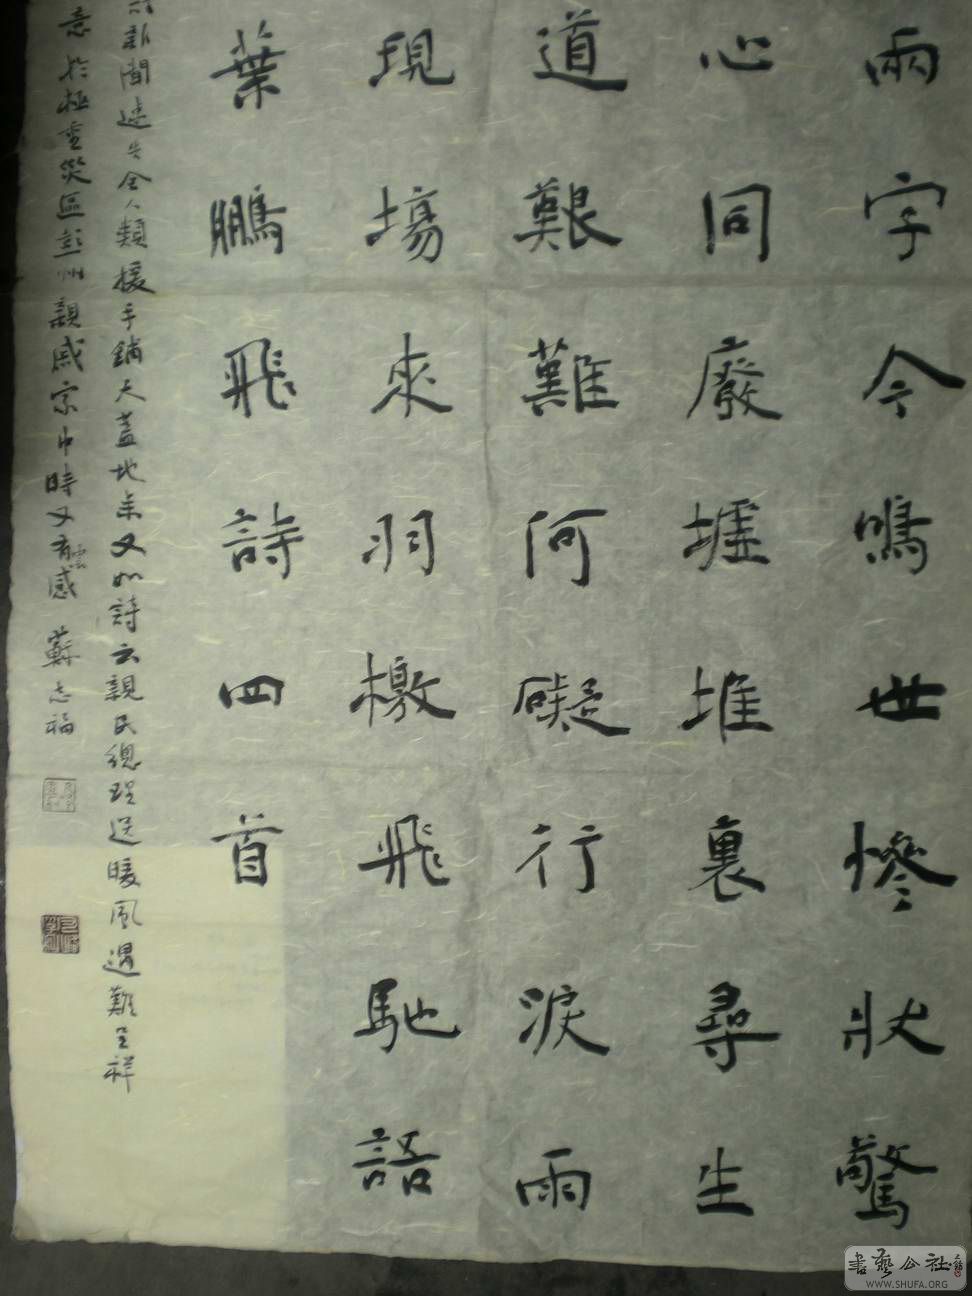 雨字今鳴世慘狀驚
心同廢墟堆裏尋生
道艱難何礙行淚雨
現場來羽檄飛馳語
葉鵬飛詩四首
新聞速失全人類援手鋪天蓋地來又如詩云親民總理送暖風遇難呈祥
意於極重災區彭州親感宗中時又有感 蘇志福
書藝公社
WWW.SHUFA.ORG